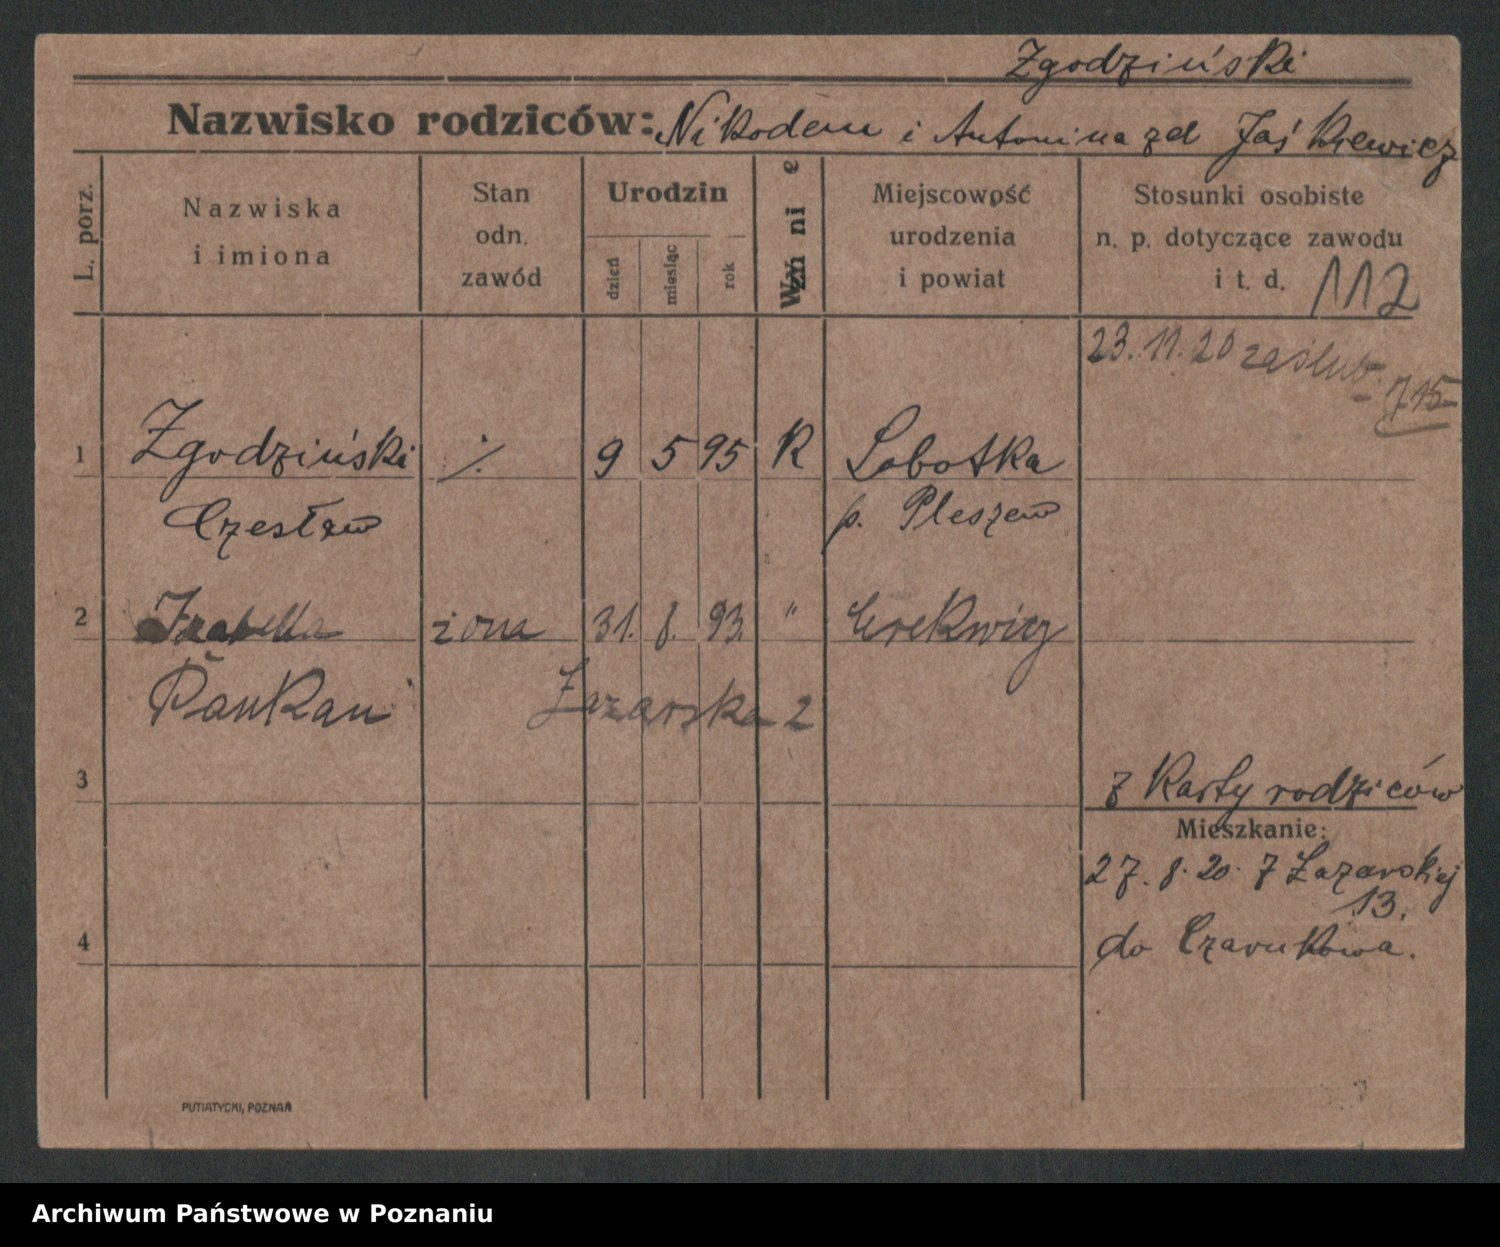 Zgodziński
Nazwisko rodziców: Nikodem i Antonina zd Jaśkiewicz
L. porz.
Nazwiska
i imiona
Stan
odn.
zawód
Urodzin
dzień
miesiąc
rok
Wyznanie
Miejscowość
urodzenia
i powiat
Stosunki osobiste
n. p. dotyczące zawodu
i t. d. 112
23.11.20 zaślub.
715
1 Zgodziński ·/. 9 5 95 R Sobotka
Czesław p. Pleszew
2 Izabella żona 31. 8. 93. " Erekwicz
Pankau Łazarska 2
3
z Karty rodziców
Mieszkanie:
27. 8. 20. z Łazarskiej
13.
4 do Czarnkowa.
PUTIATYCKI, POZNAŃ
Archiwum Państwowe w Poznaniu